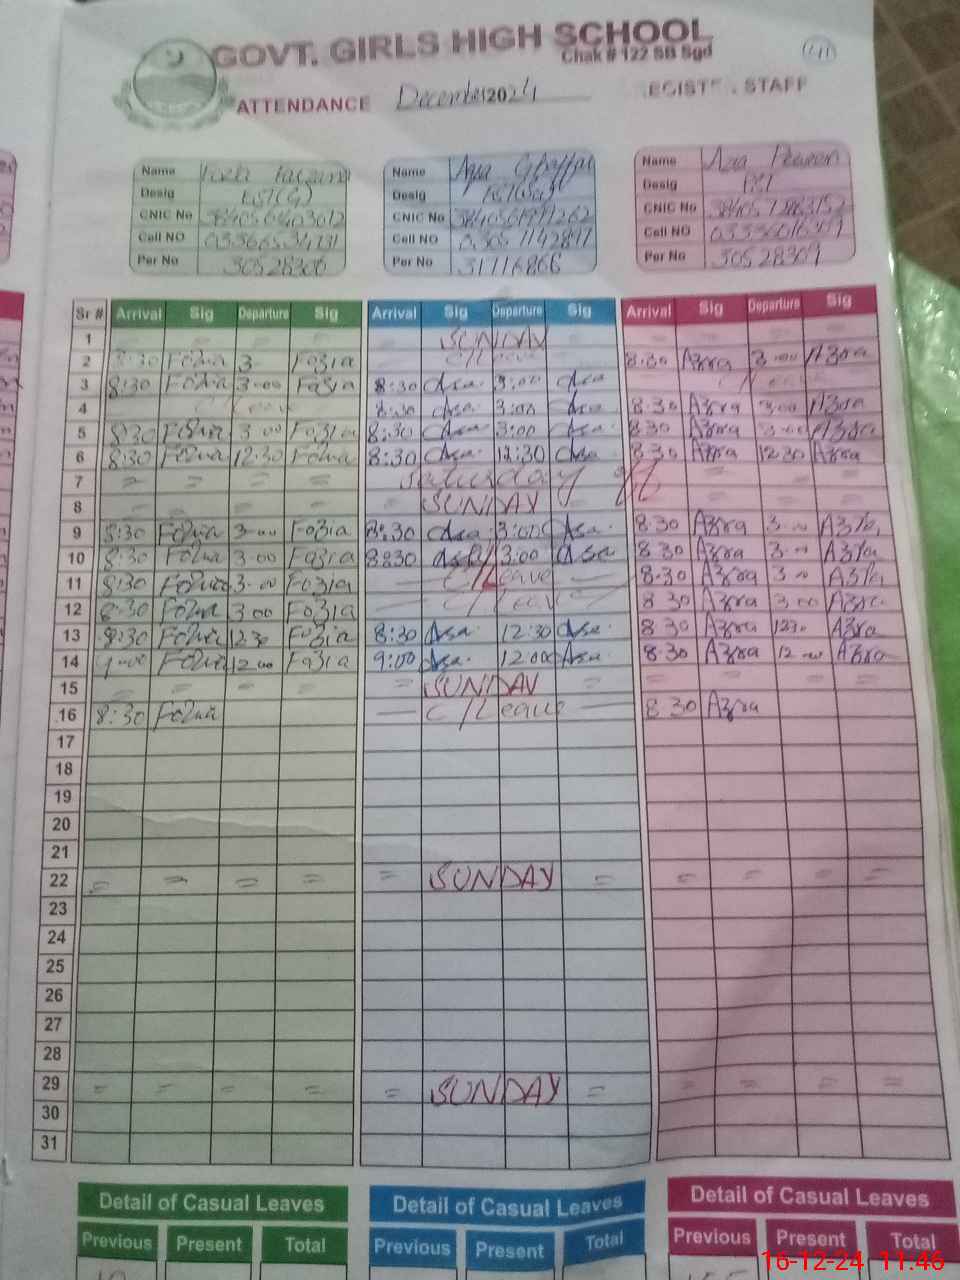 GOVT. GIRLS HIGH SCHOOL
Chak # 122 SB Sgd
ATTENDANCE December 2024 STAFF
Name
Desig EST(G)
CNIC No
Cell NO
Per No 30528306
Name Asa Ghaffar
Desig
CNIC No
Cell NO
Per No 31716866
Name
Desig
CNIC No
Cell NO
Per No 30528309
Sr # Arrival Sig Departure Sig Arrival Sig Departure Sig Arrival Sig Departure Sig
1 = = = = SUNDAY = = = =
2 8:30 Fozia 3 Fozia C/Leave 8:30 Azra 3:00 Azra
3 8:30 Fozia 3:00 Fozia 8:30 Asa 3:00 Asa C/Leave
4 C/Leave 8:30 Asa 3:00 Asa 8:30 Azra 3:00 Azra
5 8:30 Fozia 3:00 Fozia 8:30 Asa 3:00 Asa 8:30 Azra 3:00 Azra
6 8:30 Fozia 12:30 Fozia 8:30 Asa 12:30 Asa 8:30 Azra 12:30 Azra
7 = = = = Saturday = = = =
8 = = = = SUNDAY = = = =
9 8:30 Fozia 3:00 Fozia 8:30 Asa 3:00 Asa 8:30 Azra 3:00 Azra
10 8:30 Fozia 3:00 Fozia 8:30 Asa 3:00 Asa 8:30 Azra 3:00 Azra
11 8:30 Fozia 3:00 Fozia — C/Leave — 8:30 Azra 3:00 Azra
12 8:30 Fozia 3:00 Fozia — C/Leave — 8:30 Azra 3:00 Azra
13 8:30 Fozia 12:30 Fozia 8:30 Asa 12:30 Asa 8:30 Azra 12:30 Azra
14 9:00 Fozia 12:00 Fozia 9:00 Asa 12:00 Asa 8:30 Azra 12:00 Azra
15 = = = = = SUNDAY = = = = =
16 8:30 Fozia — C/Leave — 8:30 Azra
17
18
19
20
21
22 = = = = = SUNDAY = = = = =
23
24
25
26
27
28
29 = = = = = SUNDAY = = = = =
30
31
Detail of Casual Leaves Detail of Casual Leaves Detail of Casual Leaves
Previous Present Total Previous Present Total Previous Present Total
16-12-24 11:46